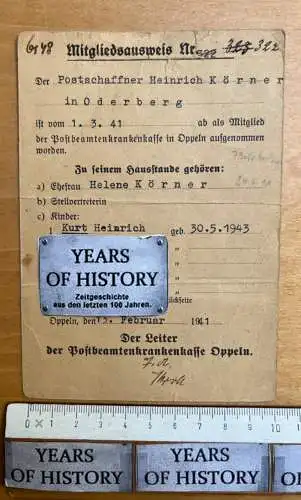 6r48 Mitgliedsausweis Nr. 323 322
Der Postschaffner Heinrich Körner
in Oderberg
ist vom 1. 3. 41 ab als Mitglied
der Postbeamtenkrankenkasse in Oppeln aufgenommen
worden.
Zu seinem Hausstande gehören:
a) Ehefrau Helene Körner
b) Stellvertreterin
c) Kinder:
1 Kurt Heinrich geb. 30.5.1943
"
"
"
YEARS
OF HISTORY
Zeitgeschichte
aus den letzten 100 Jahren.
Oppeln, den 15. Februar 1941
Der Leiter
der Postbeamtenkrankenkasse Oppeln.
J. A.
0 1 2 3 4 5 6 7 8 9 10
YEARS
OF HISTORY
YEARS
OF HISTORY